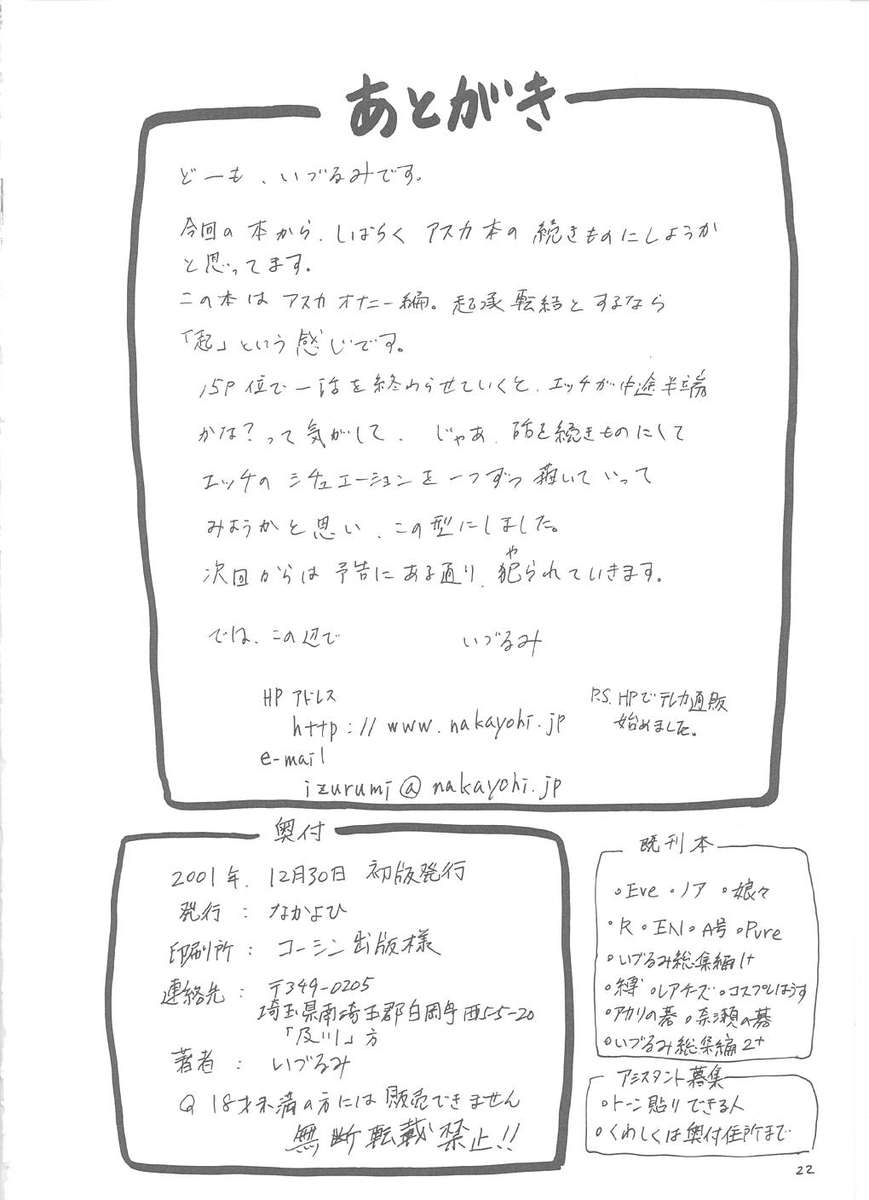 あとがき
どーも、いづるみです。
今回の本から、しばらく アスカ本の続きものにしようか
と思ってます。
この本は アスカオナニー編。起承転結とするなら
「起」という感じです。
15P位で一話を終わらせていくと、エッチが中途半端
かな？って気がして、じゃあ、話を続きものにして
エッチのシチュエーションを一つずつ描いていって
みようかと思い、この型にしました。
次回からは予告にある通り、犯られていきます。
や
では、この辺で いづるみ
HPアドレス
http://www.nakayohi.jp
e-mail
izurumi@nakayohi.jp
P.S. HPでテレカ通販
始めました。
奥付
2001年、12月30日 初版発行
発行：なかよひ
印刷所：コーシン出版様
連絡先：〒349-0205
埼玉県南埼玉郡白岡町西5-5-20
「及川」方
著者：いづるみ
18才未満の方には販売できません
無断転載禁止!!
既刊本
◦Eve ◦ノア ◦娘々
◦R ◦EN ◦A号 ◦Pure
◦いづるみ総集編1+
◦縛 ◦レアチーズ ◦コスプレはうす
◦アカリの碁 ◦奈瀬の碁
◦いづるみ総集編2+
アシスタント募集
◦トーン貼りできる人
◦くわしくは奥付住所まで
22